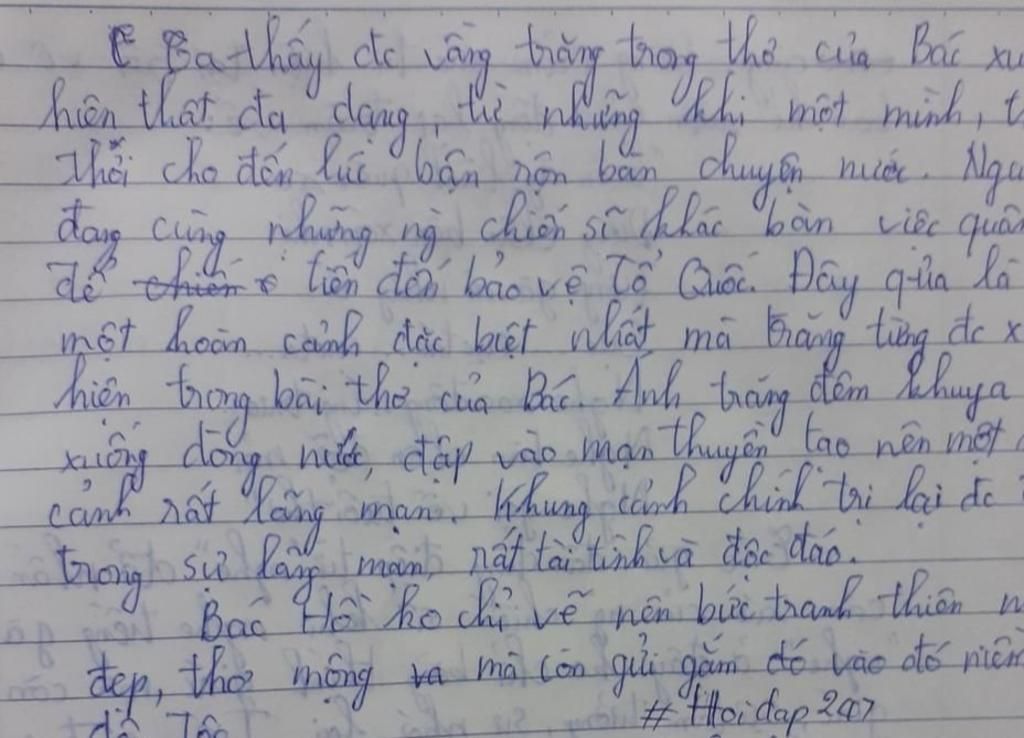 Ba thấy đc vầng trăng trong thơ của Bác xu
hiện thật đa dạng, từ những khi một mình, t
thổi cho đến lúc bận rộn bàn chuyện nước. Ngư
đang cùng những ng chiến sĩ khác bàn việc quân
để chiến tiến đến bảo vệ Tổ Quốc. Đây qủa là
một hoàn cảnh đặc biệt nhất mà trăng từng đc x
hiện trong bài thơ của Bác. Ánh trăng đêm khuya
xuống dòng nước, đập vào mạn thuyền tạo nên một
cảnh rất lãng mạn. Khung cảnh chính trị lại đc
trong sự lãng mạn, rất tài tình và độc đáo.
Bác Hồ ko chỉ vẽ nên bức tranh thiên n
đẹp, thơ mộng ra mà còn gửi gắm đó vào đó niềm
# Hoidap247